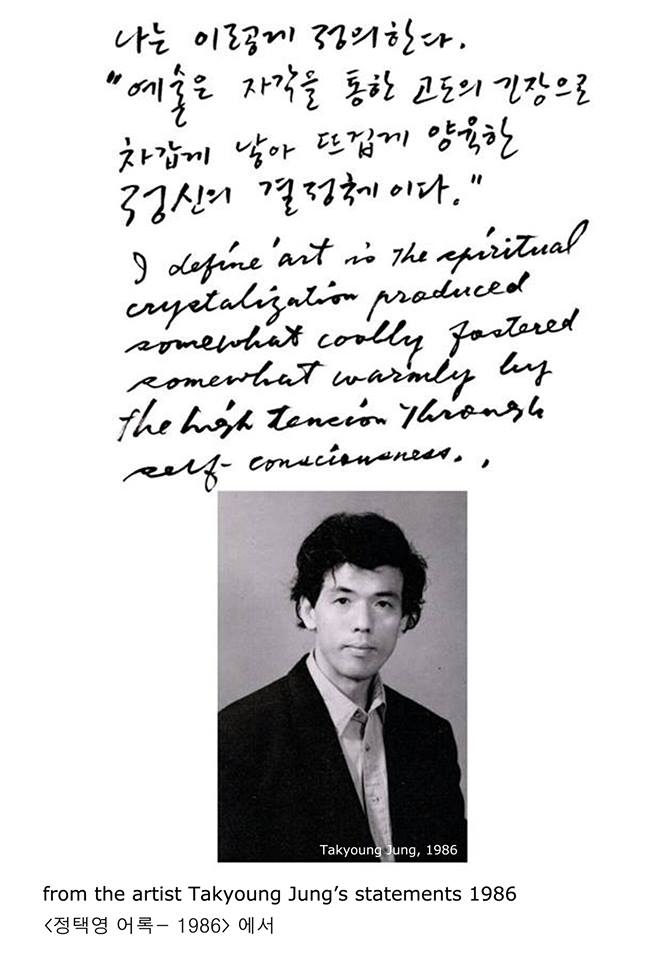 나는 이렇게 정의한다.
"예술은 자각을 통한 고도의 긴장으로
차갑게 낳아 뜨겁게 양육한
정신의 결정체이다."
I define 'art is the spiritual
crystalization produced
somewhat coolly fostered
somewhat warmly by
the high tencion through
self-consciousness. ,
Takyoung Jung, 1986
from the artist Takyoung Jung's statements 1986
<정택영 어록- 1986> 에서